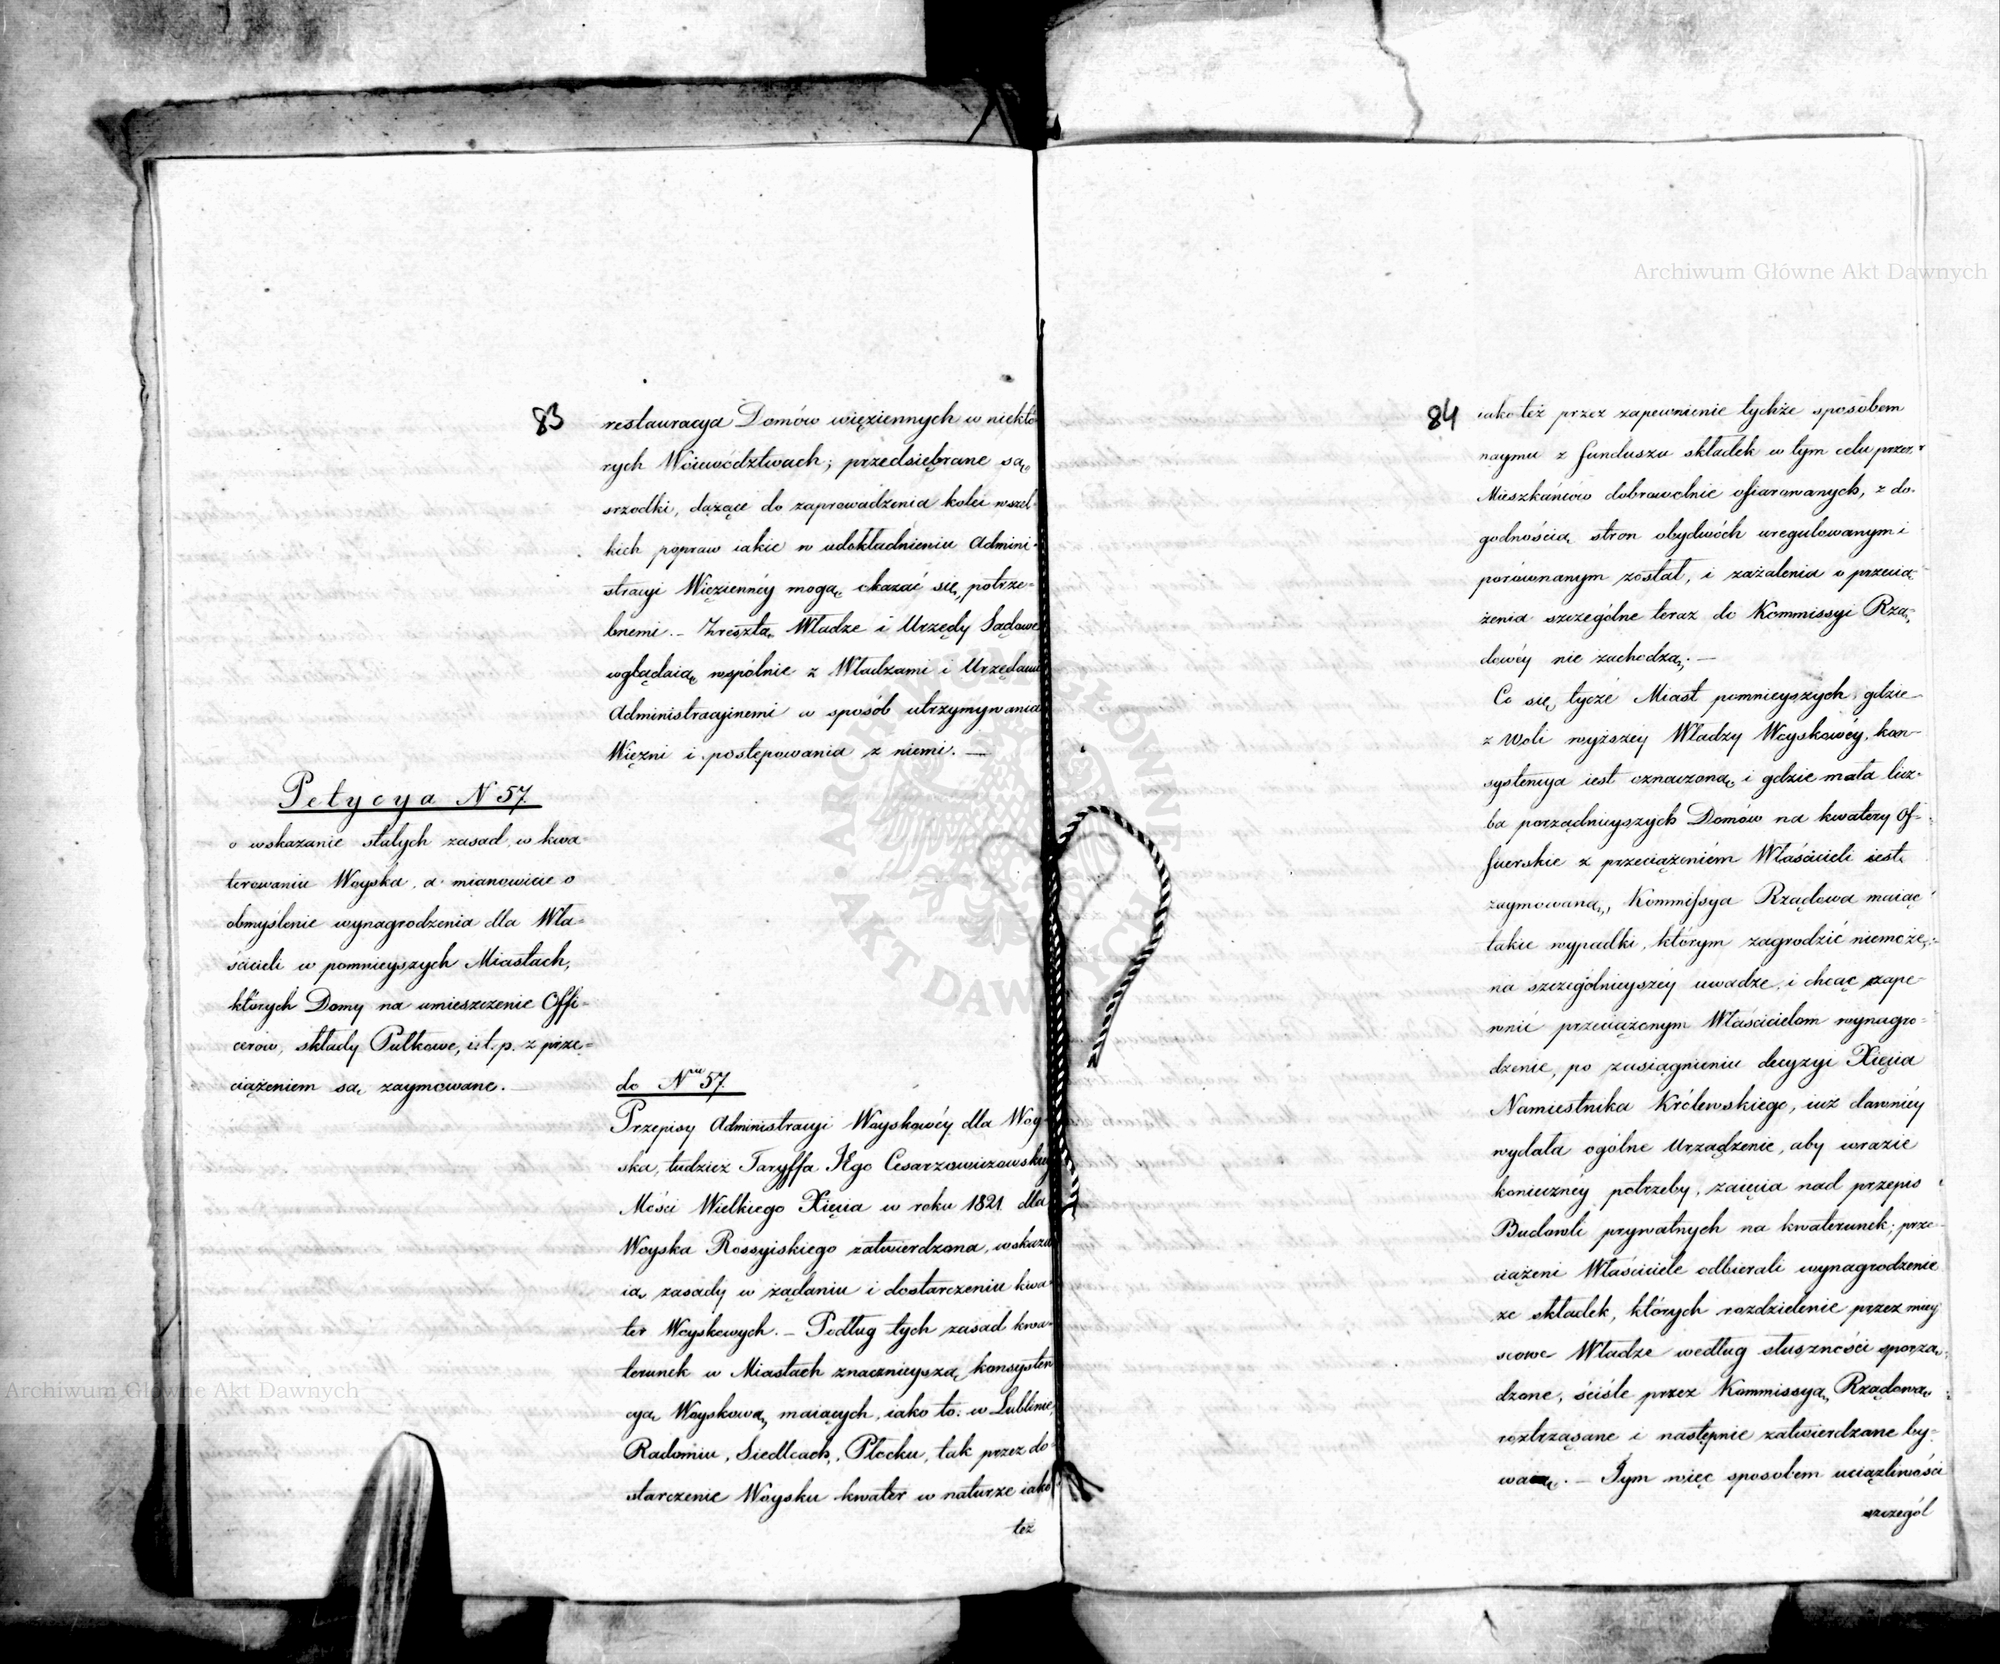 83
restauracya Domów więziennych w niektó
rych Woiewództwach; przedsiębrane są
srzodki, dążące do zaprowadzenia kolei wszel-
kich popraw iakie w udokładnieniu Admini-
stracyi Więziennéy mogą okazać się potrze-
bnemi. – Zresztą Władze i Urzędy Sądowe
wglądaią wspólnie z Władzami i Urzędami
Administracyinemi w sposób utrzymywania
Więzni i postępowania z niemi. —
Petycya N 57.
o wskazanie stałych zasad w kwa-
terowaniu Woyska, a mianowicie o
obmyślenie wynagrodzenia dla Wła-
ścicieli w pomnieyszych Miastach,
których Domy na umieszczenie Offi-
cerów, składy Pułkowe, i t. p. z prze-
ciążeniem są zaymowane. —
do Nru 57.
Przepisy Administracyi Woyskowéy dla Woy-
ska, tudzież Taryffa JEgo Cesarzowiczowskiey
Mości Wielkiego Xięcia w roku 1821 dla
Woyska Rossyiskiego zatwierdzona, wskazu
ią zasady w żądaniu i dostarczeniu kwa-
ter Woyskowych. – Podług tych zasad kwa-
terunek w Miastach znacznieyszą konsysten
cyą Woyskową maiących, iako to: w Lublinie,
Radomiu, Siedlcach, Płocku, tak przez do-
starczenie Woysku kwater w naturze iako
też
84
iako też przez zapewnienie tychże sposobem
naymu z funduszu składek w tym celu przez
Mieszkańców dobrowolnie ofiarowanych, z do-
godnością stron obydwóch uregulowanym i
porównanym został, i zażalenia o przecią-
żenia szczególne teraz do Kommissyi Rzą-
dowéy nie zachodzą. —
Co się tycze Miast pomnieyszych gdzie
z woli wyższey Władzy Woyskowéy, kon-
systencya iest oznaczoną i gdzie mała licz-
ba porządnieyszych Domów na kwatery Of-
ficerskie z przeciążeniém Właścicieli iest
zaymowaną, Kommissya Rządowa maiąc
takie wypadki, którym zagrodzić niemoże,
na szczególnieyszéy uwadze, i chcąc zape-
wnić przeciążonym Właścicielom wynagro-
dzenie, po zasiągnieniu decyzyi Xięcia
Namiestnika Królewskiego, iuż dawniéy
wydała ogólne Urządzenie, aby wrazie
koniecznéy potrzeby, zaięcia nad przepis
Budowli prywatnych na kwaterunek, prze-
ciążeni Właściciele odbierali wynagrodzenie
ze składek, których rozdzielenie przez miey
scowe Władze według słuszności sporzą-
dzone, ściśle przez Kommissyą Rządową
roztrząsane i następnie zatwierdzane by-
waią. – Tym więc sposobem uciążliwości
szczegól
Archiwum Główne Akt Dawnych
Archiwum Główne Akt Dawnych
ARCHIWUM GŁÓWNE AKT DAWNYCH